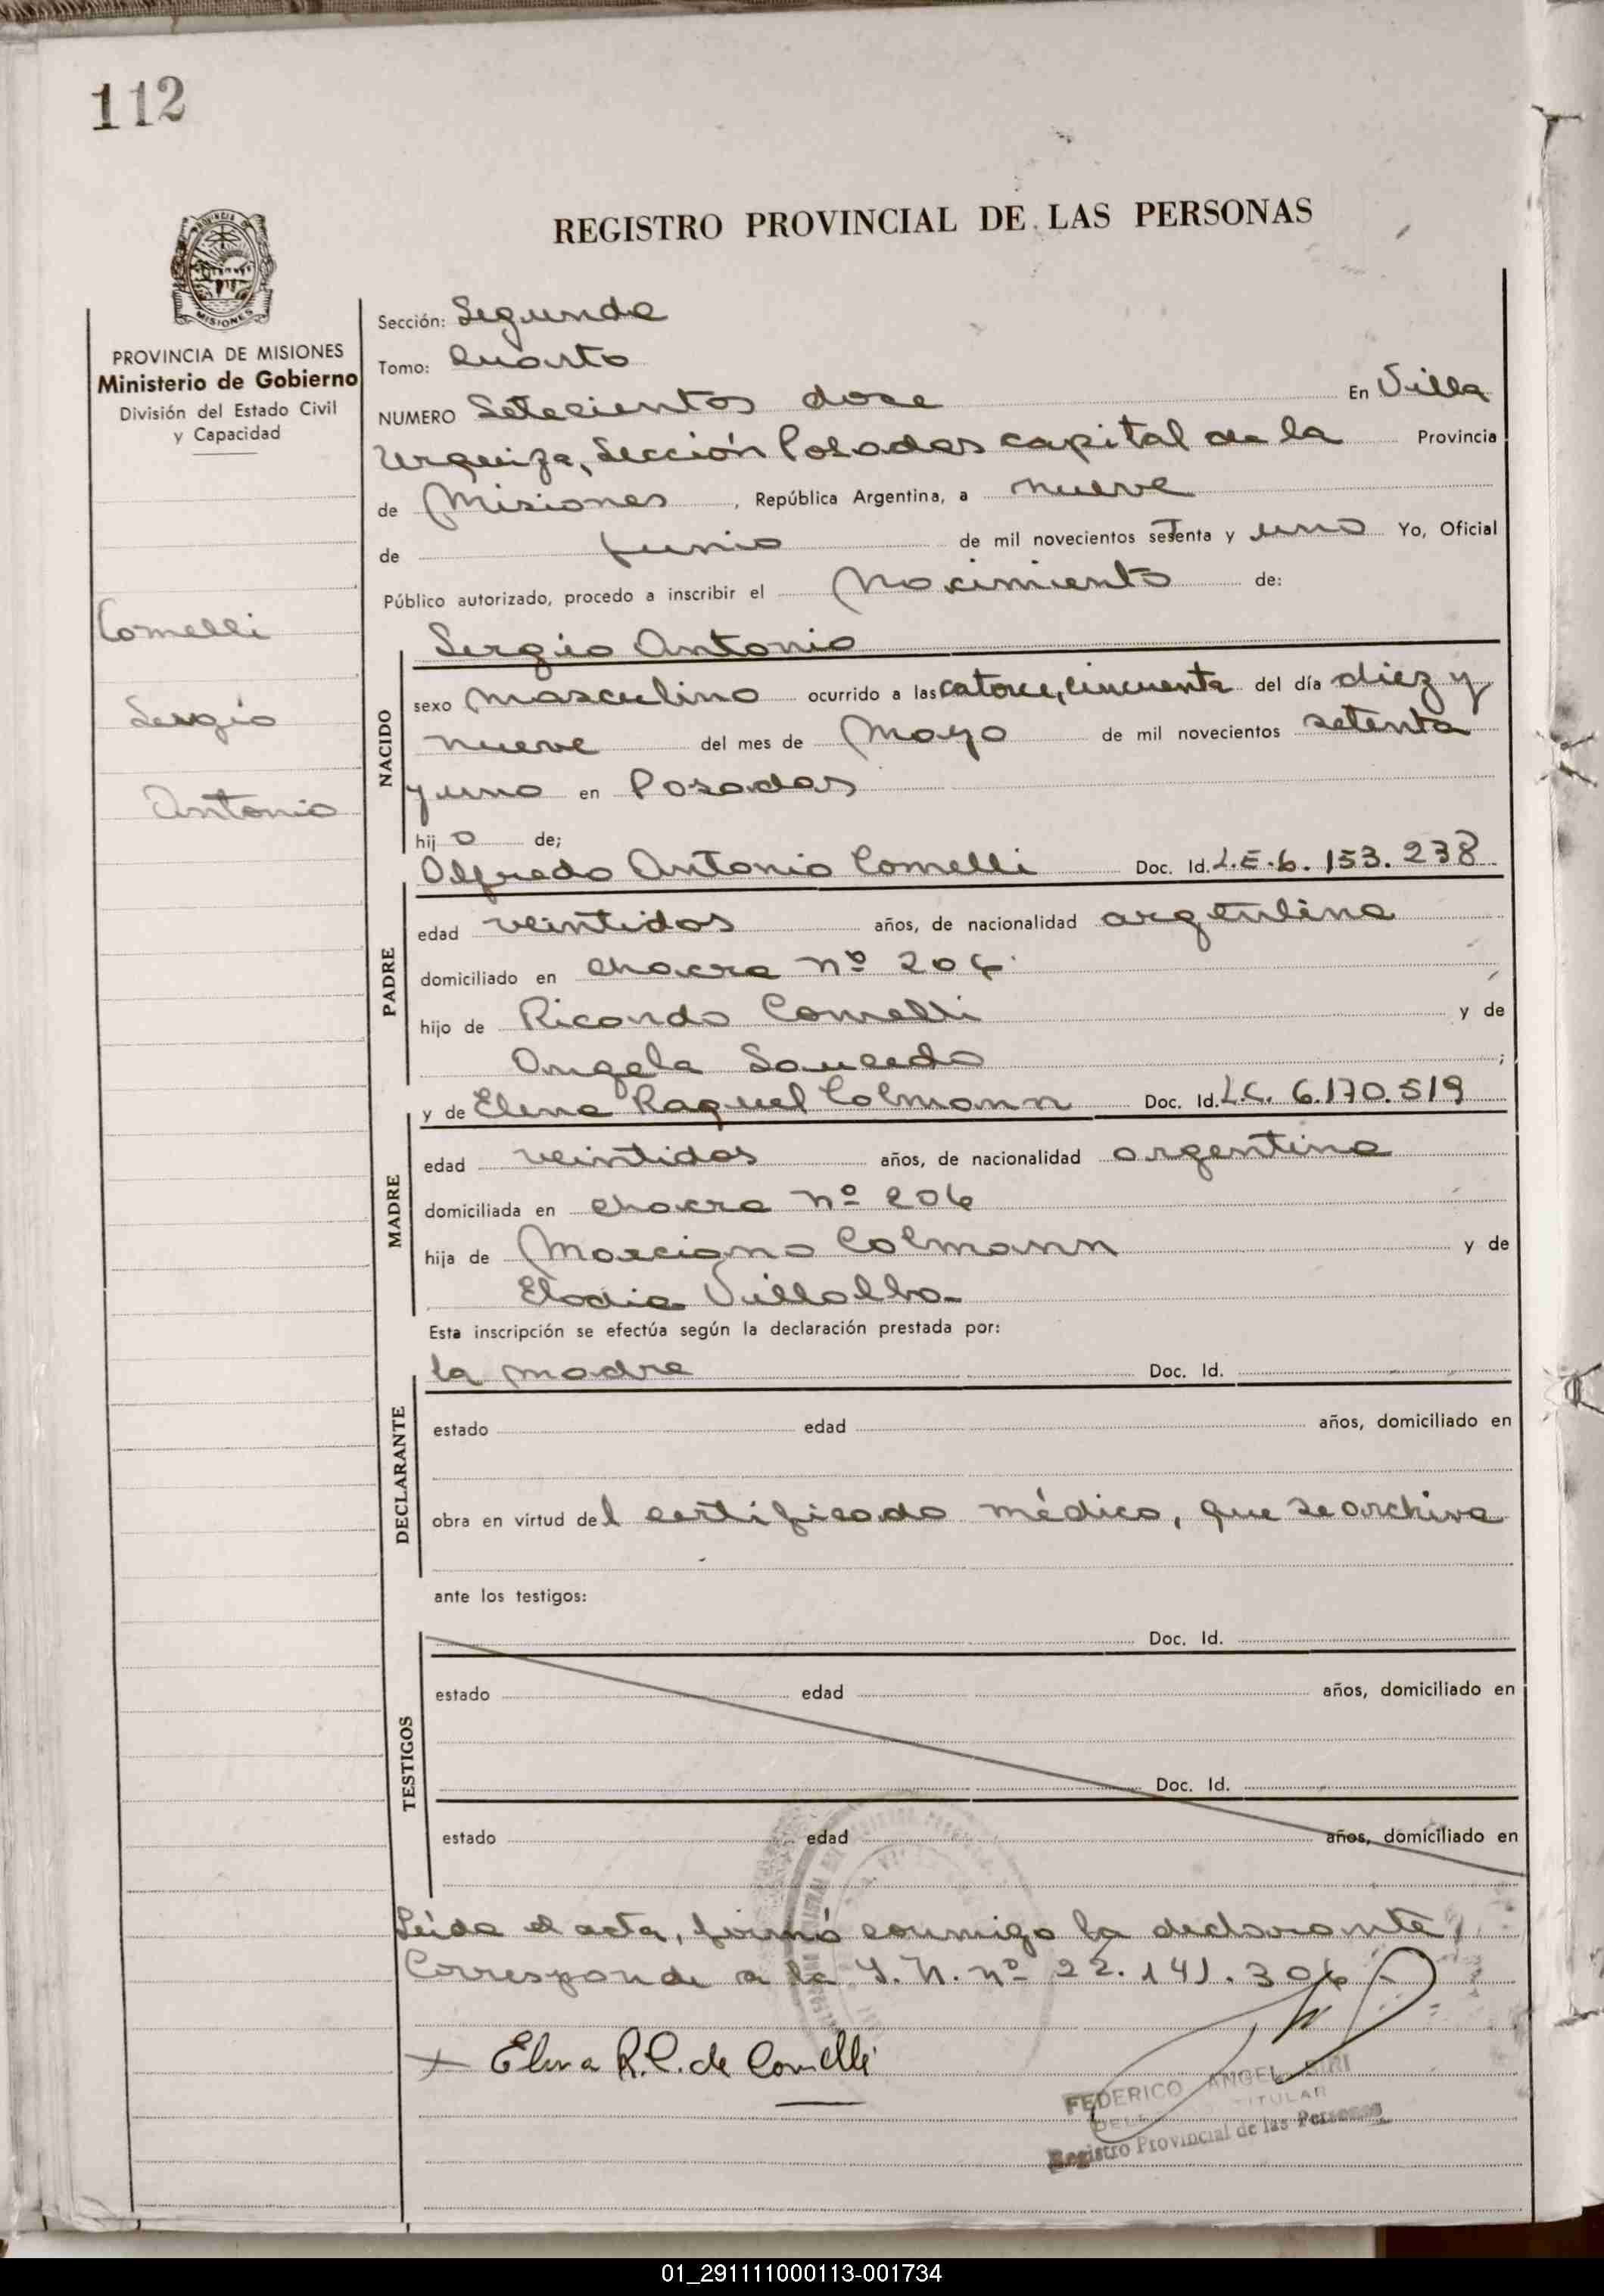 112
REGISTRO PROVINCIAL DE LAS PERSONAS
PROVINCIA DE
MISIONES
PROVINCIA DE MISIONES
Ministerio de Gobierno
División del Estado Civil
y Capacidad
Comelli
Sergio
Antonio
Sección: Segunda
Tomo: Cuarto
NUMERO Setecientos doce En Villa
Urquiza, Sección Posadas capital de la Provincia
de Misiones, República Argentina, a nueve
de junio de mil novecientos setenta y uno Yo, Oficial
Público autorizado, procedo a inscribir el Nacimiento de:
Sergio Antonio
NACIDO
sexo masculino ocurrido a las catorce, cincuenta del día diez y
nueve del mes de Mayo de mil novecientos setenta
y uno en Posadas
hij o de;
Alfredo Antonio Comelli Doc. Id. L.E. 6.153.238
PADRE
edad veintidos años, de nacionalidad argentina
domiciliado en chacra nº 206
hijo de Ricardo Comelli y de
Angela Saucedo ;
y de Elena Raquel Colmann Doc. Id. L.C. 6.170.519
MADRE
edad veintidos años, de nacionalidad argentina
domiciliada en chacra nº 206
hija de Marciano Colmann y de
Elodia Villalba.
Esta inscripción se efectúa según la declaración prestada por:
la madre Doc. Id.
DECLARANTE
estado edad años, domiciliado en
obra en virtud del certificado médico, que se archiva
ante los testigos:
Doc. Id.
TESTIGOS
estado edad años, domiciliado en
Doc. Id.
estado edad años, domiciliado en
Leida el acta, firmó conmigo la declarante,
Corresponde a la I.N. nº 22.141.306
Elena R.C. de Comelli
FEDERICO ANGEL
TITULAR
Registro Provincial de las Personas
01_291111000113-001734